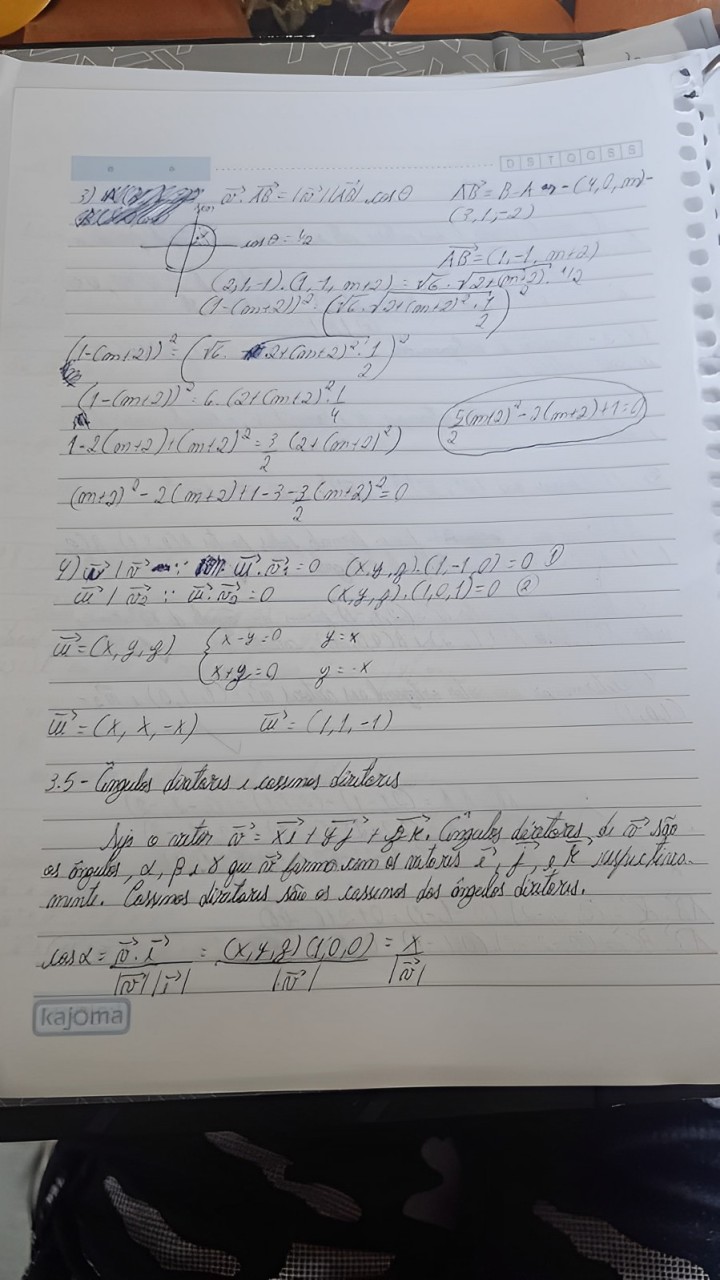 D S T Q Q S S
3) v⃗ . AB⃗ = |v⃗| |AB⃗| . cos θ AB⃗ = B - A = (4, 0, m) -
(3, 1, -2)
cos θ = 1/2
AB⃗ = (1, -1, m+2)
(2, 1, -1) . (1, -1, m+2) = √6 . √2+(m+2)² . 1/2
(1-(m+2))² = (√6 . √2+(m+2)² . 1/2)²
(1-(m+2))² = (√6 . 2+(m+2)² . 1/2)²
(1-(m+2))² = 6 . (2+(m+2)² . 1/4
1-2(m+2)+(m+2)² = 3/2 (2+(m+2)²) 5/2(m+2)² - 2(m+2)+1=0
(m+2)² - 2(m+2)+1-3-3/2(m+2)² = 0
4) u⃗ ⊥ v⃗ ∵ u⃗ . v⃗₁ = 0 (x, y, z) . (1, -1, 0) = 0 ①
u⃗ ⊥ v⃗₂ ∵ u⃗ . v⃗₂ = 0 (x, y, z) . (1, 0, 1) = 0 ②
u⃗ = (x, y, z) { x - y = 0 y = x
{ x + z = 0 z = -x
u⃗ = (x, x, -x) u⃗ = (1, 1, -1)
3.5 - Ângulos diretores e cossenos diretores
Seja o vetor v⃗ = xi⃗ + yj⃗ + zk⃗. Ângulos diretores de v⃗ são
os ângulos, α, β e γ que v⃗ forma com os vetores i⃗, j⃗, e k⃗ respectiva-
mente. Cossenos diretores são os cossenos dos ângulos diretores.
cos α = v⃗ . i⃗ / |v⃗| |i⃗| = (x, y, z) (1, 0, 0) / |v⃗| = x / |v⃗|
kajoma